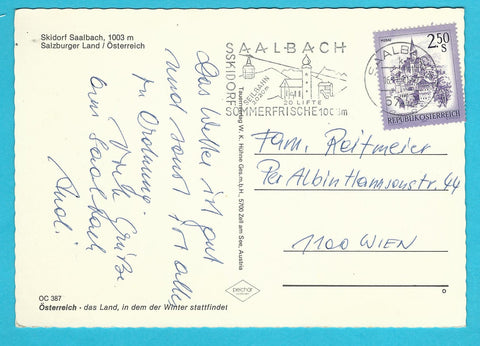 Skidorf Saalbach, 1003 m
Salzburger Land / Österreich
Das Wetter ist gut
und sonst ist alles
in Ordnung.
Viele Grüße
aus Saalbach
Andi
OC 387
Österreich - das Land, in dem der Winter stattfindet
Tauernverlag W. K. Hühne Ges.m.b.H., 5700 Zell am See, Austria
pechar
SAALBACH
SKIDORF
SEILBAHN
20 LIFTE
SOMMERFRISCHE 1003m
SAALBACH
2.50
S
REPUBLIK ÖSTERREICH
Fam. Reitmeier
Per Albin Hanssonstr. 44
1100 WIEN